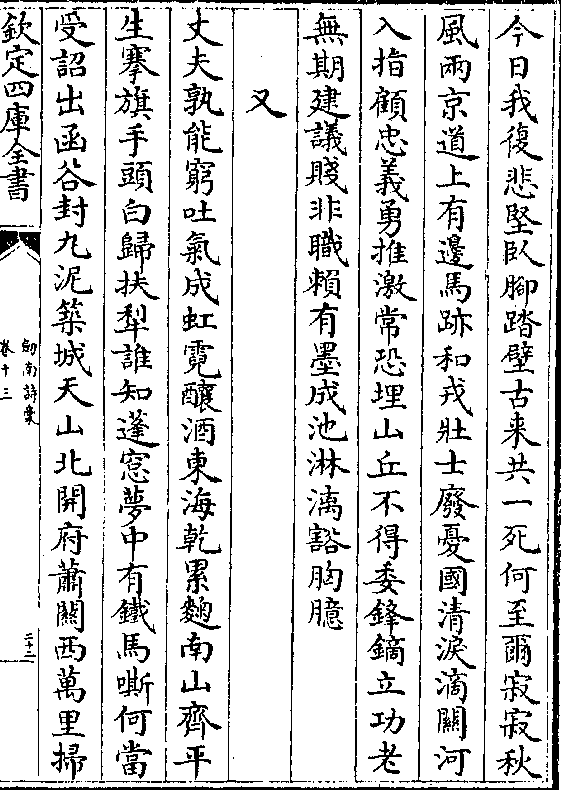 今日我復悲堅臥腳踏壁古来共一死何至爾寂寂秋
風兩京道上有邊馬跡和戎壯士廢憂國清淚滴關河
入指顧忠義勇推激常恐埋山丘不得委鋒鏑立功老
無期建議賤非職賴有墨成池淋漓豁胸臆
又
丈夫孰能窮吐氣成虹霓釀酒東海乾累麴南山齊平
生搴旗手頭白歸扶犁誰知蓬窓夢中有鐵馬嘶何當
受詔出函谷封九泥築城天山北開府蕭關西萬里掃
欽定四庫全書
劒南詩稾
卷十三
二十二